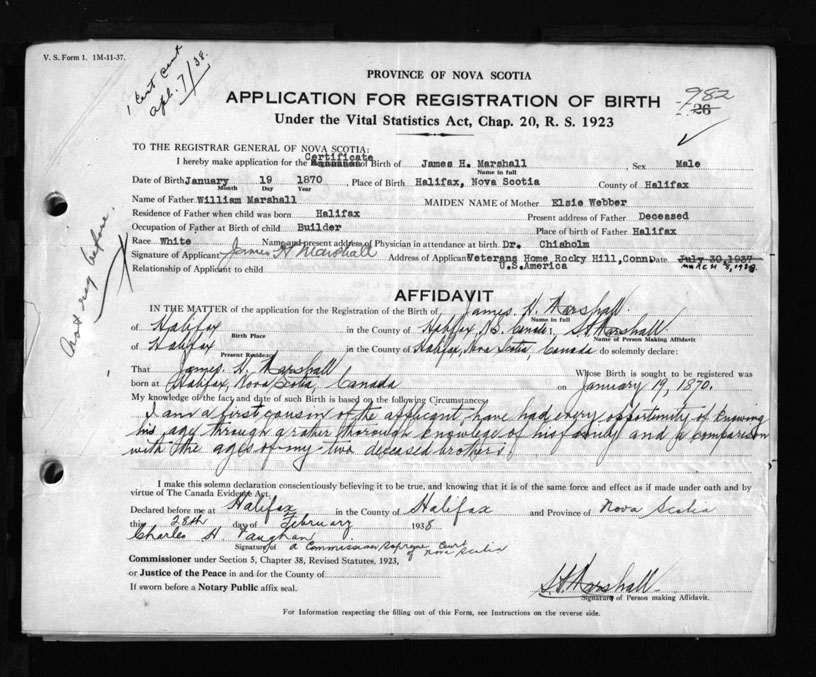 V. S. Form 1. 1M-11-37.
1 Cert sent
apl. 7/38.
PROVINCE OF NOVA SCOTIA
APPLICATION FOR REGISTRATION OF BIRTH
982
26
Under the Vital Statistics Act, Chap. 20, R. S. 1923
TO THE REGISTRAR GENERAL OF NOVA SCOTIA:
Certificate
I hereby make application for the of Birth of James H. Marshall, Sex Male
Name in full
Date of Birth January 19 1870, Place of Birth Halifax, Nova Scotia County of Halifax
Month Day Year
Name of Father William Marshall MAIDEN NAME of Mother Elsie Webber
Residence of Father when child was born Halifax Present address of Father Deceased
Occupation of Father at Birth of child Builder Place of birth of Father Halifax
Race White Name and present address of Physician in attendance at birth Dr. Chisholm
Signature of Applicant James H Marshall Address of Applicant Veterans Home Rocky Hill, Conn Date July 30, 1937
U.S.America MARCH 8, 1938.
Relationship of Applicant to child
Not reg before.
AFFIDAVIT
IN THE MATTER of the application for the Registration of the Birth of James. H. Marshall
Name in full
of Halifax in the County of Halifax, N.S. Canada I, S H Marshall
Birth Place Name of Person Making Affidavit
of Halifax in the County of Halifax, Nova Scotia, Canada do solemnly declare:
Present Residence
That James. H. Marshall Whose Birth is sought to be registered was
born at Halifax, Nova Scotia, Canada on January 19, 1870.
My knowledge of the fact and date of such Birth is based on the following Circumstances
I am a first cousin of the applicant, have had every opportunity of knowing
his age through a rather thorough knowlege of his family and a comparison
with the ages of my two deceased brothers.
I make this solemn declaration conscientiously believing it to be true, and knowing that it is of the same force and effect as if made under oath and by
virtue of The Canada Evidence Act.
Declared before me at Halifax in the County of Halifax and Province of Nova Scotia
this 28th day of February 1938
Charles H. Vaughan
Signature of a Commissioner Supreme Court
of Nova Scotia
Commissioner under Section 5, Chapter 38, Revised Statutes, 1923,
or Justice of the Peace in and for the County of
If sworn before a Notary Public affix seal.
S H Marshall
Signature of Person making Affidavit.
For Information respecting the filling out of this Form, see Instructions on the reverse side.